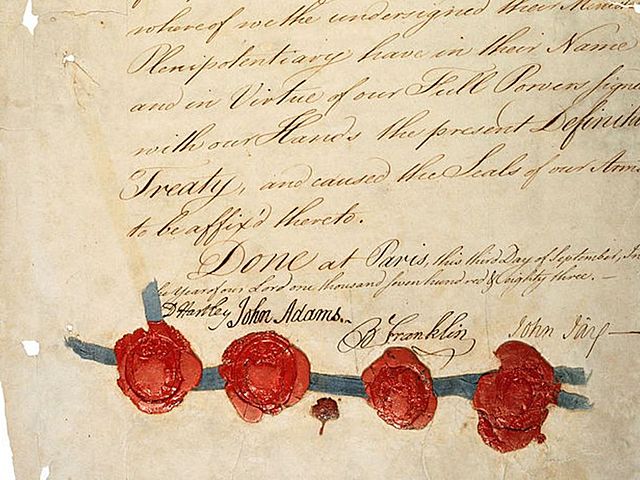 whereof we the undersigned their
Plenipotentiary have in their Name
and in Virtue of our Full Powers
with our Hands the present
Treaty, and caused the Seals of our Arms
to be affix'd thereto.
Done at Paris, this third Day of September, In
Year of our Lord one thousand seven hundred & eighty three. —
D Hartley John Adams. B Franklin John Jay —